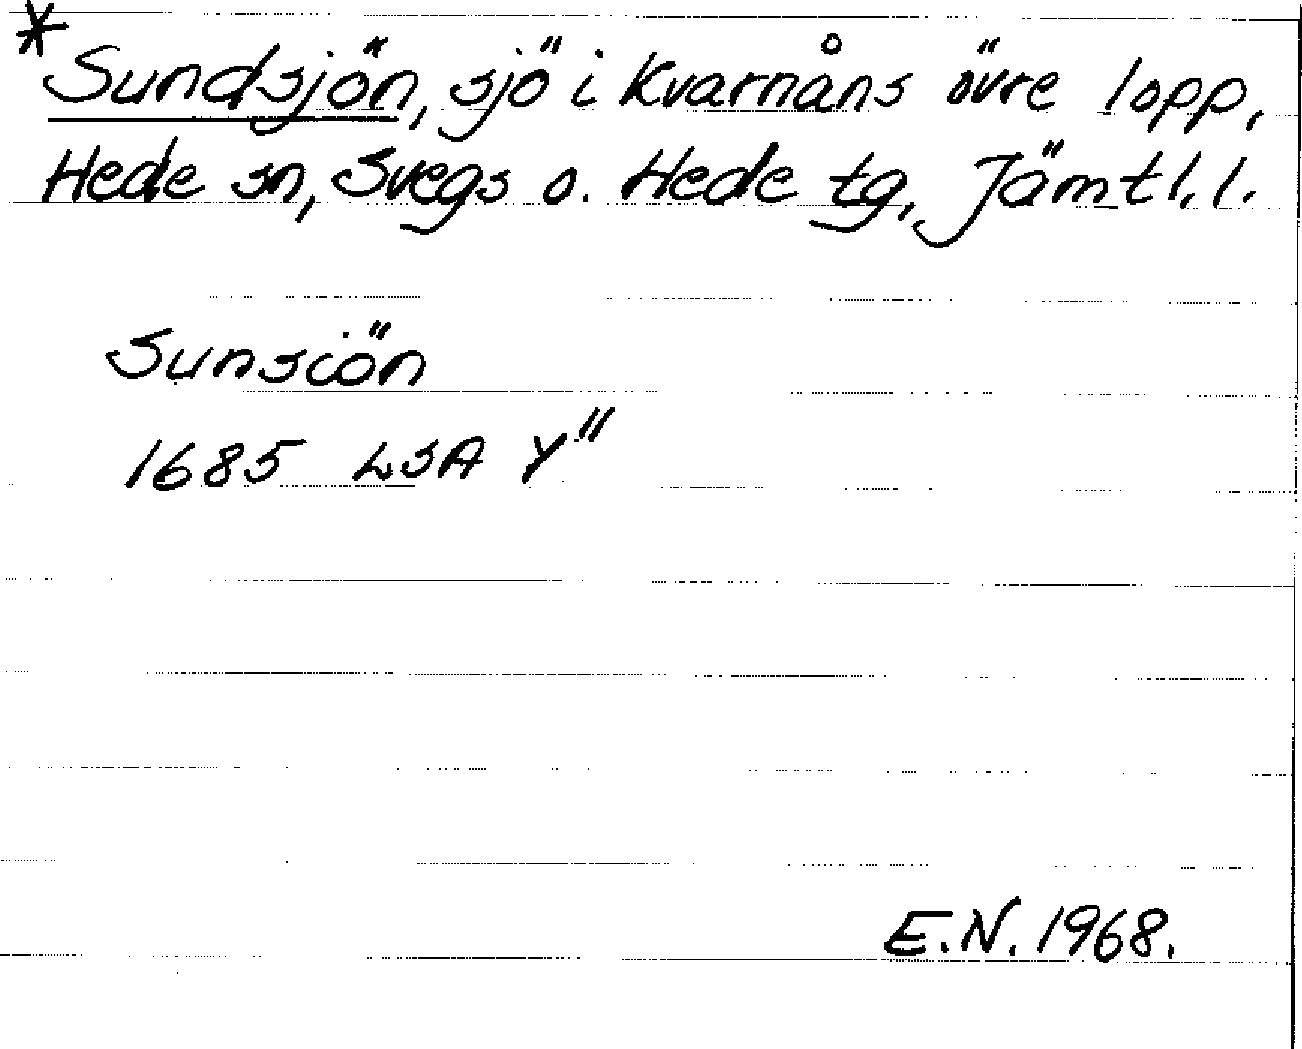 * Sundsjön, sjö i Kvarnåns övre lopp,
Hede sn, Svegs o. Hede tg, Jämtl. l.
Sunsiön
1685 LSA Y"
E.N. 1968.